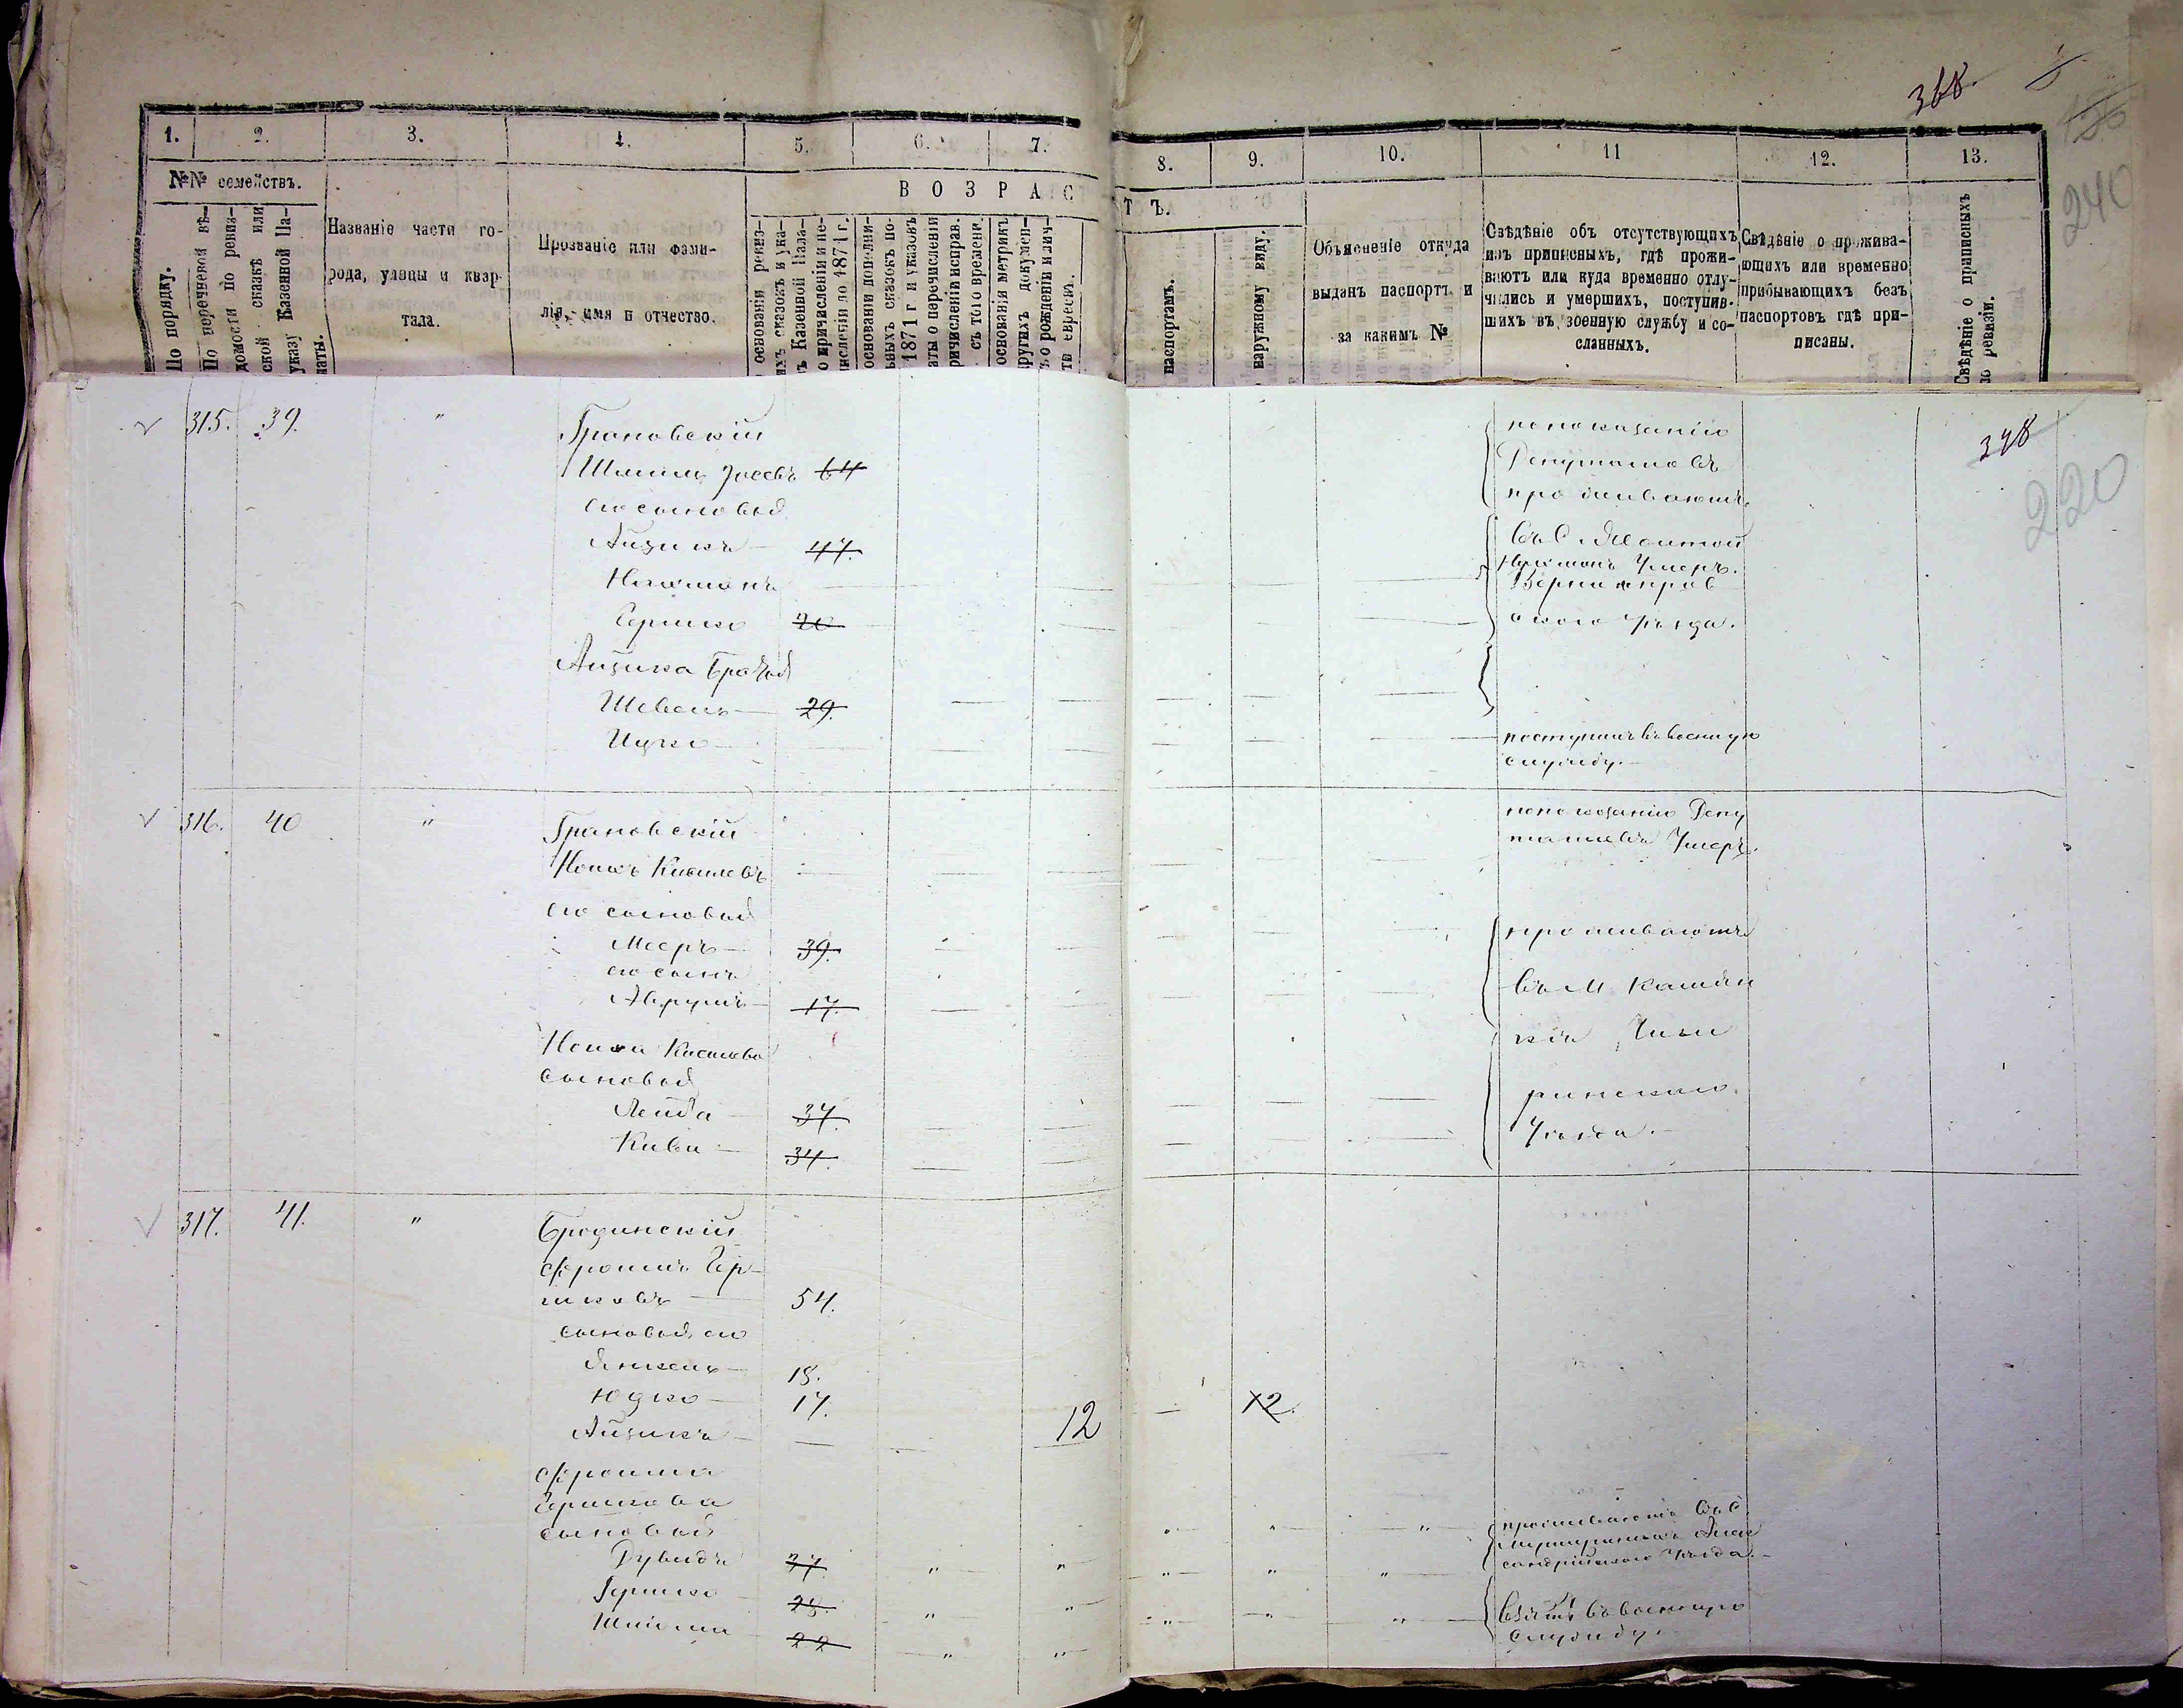 368.
240
1. 2. 3. 4. 5. 6. 7. 8. 9. 10. 11 12. 13.
№№ семействъ.
По порядку.
По перечневой вѣ-
домости по ревиз-
ской сказкѣ или
указу Казенной Па-
латы.
Названіе части го-
рода, улицы и квар-
тала.
Прозваніе или фами-
лія, имя и отчество.
ВОЗРАСТЪ.
основаніи ревиз-
ихъ сказокъ и ука-
ъ Казенной Пала-
о причисленіи и пе-
численіи до 1874 г.
основаніи дополни-
ьныхъ сказокъ по-
1871 г и указовъ
аты о перечисленіи
ричисленіи исправ.
съ того времени.
основаніи метрикъ
ругихъ докумен-
ъ о рожденіи и лич-
ти евреевъ.
паспортамъ.
наружному виду.
Объясненіе откуда
выданъ паспортъ и
за какимъ №
Свѣдѣніе объ отсутствующихъ
изъ приписныхъ, гдѣ прожи-
ваютъ или куда временно отлу-
чились и умершихъ, поступив-
шихъ въ военную службу и со-
сланныхъ.
Свѣдѣніе о прожива-
ющихъ или временно
прибывающихъ безъ
паспортовъ гдѣ при-
писаны.
Свѣдѣніе о приписныхъ
по ревизіи.
315. 39. " Грановскій
Іосевъ 64
его сыновья
Айзикъ 47.
Нахманъ
Гершко 20
Айзика братья
29.
Ицко
по показанію
Депутатовъ
проживаютъ
въ С.
Нахманъ умеръ.
ского уѣзда.
поступилъ въ военную
службу.
378
220
316. 40 " Грановскій
его сыновья
Мееръ 39.
его сынъ
Аврумъ 17.
сыновья
Лейба 37.
Кива 34.
по показанію Депу
татовъ умеръ.
проживаютъ
въ М. Камян
кѣ Чиги
ринского
уѣзда.
317. 41. " Бродинскій
Фроимъ Гер
шковъ 54.
сыновья его
Янкель 18.
Юдко 17.
Айзикъ 12 12.
Фроима
Гершкова
сыновья
Дувидъ 37
Гершко 28.
Шмилик 22
проживаютъ въ С.
Алек
сандрійского уѣзда.
взятъ въ военную
службу.